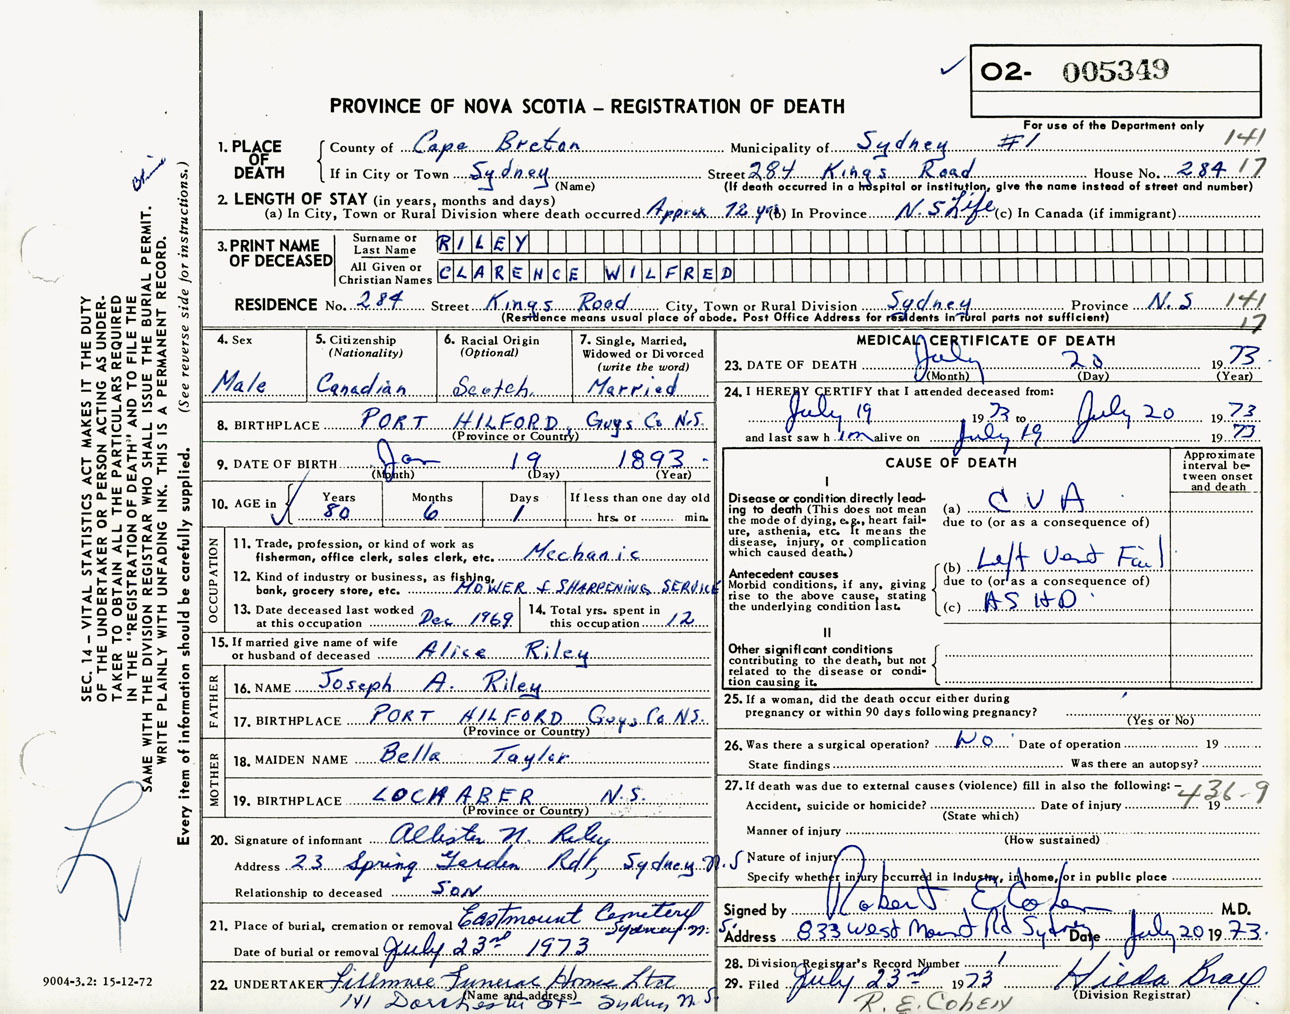 ✓ O2- 005349
PROVINCE OF NOVA SCOTIA – REGISTRATION OF DEATH
For use of the Department only
1. PLACE OF DEATH
County of Cape Breton Municipality of Sydney #1 141
If in City or Town Sydney Street 284 Kings Road House No. 284 17
(Name) (If death occurred in a hospital or institution, give the name instead of street and number)
2. LENGTH OF STAY (in years, months and days)
(a) In City, Town or Rural Division where death occurred Approx 72 yrs (b) In Province N.S Life (c) In Canada (if immigrant)
3. PRINT NAME OF DECEASED
Surname or Last Name RILEY
All Given or Christian Names CLARENCE WILFRED
RESIDENCE No. 284 Street Kings Road City, Town or Rural Division Sydney Province N.S 141
(Residence means usual place of abode. Post Office Address for residents in rural parts not sufficient) 17
4. Sex
Male
5. Citizenship
(Nationality)
Canadian
6. Racial Origin
(Optional)
Scotch
7. Single, Married,
Widowed or Divorced
(write the word)
Married
8. BIRTHPLACE PORT HILFORD, Guys Co N.S.
(Province or Country)
9. DATE OF BIRTH Jan 19 1893
(Month) (Day) (Year)
10. AGE in Years Months Days If less than one day old
80 6 1 hrs. or min.
OCCUPATION
11. Trade, profession, or kind of work as
fisherman, office clerk, sales clerk, etc. Mechanic
12. Kind of industry or business, as fishing,
bank, grocery store, etc. MOWER & SHARPENING SERVICE
13. Date deceased last worked
at this occupation Dec 1969
14. Total yrs. spent in
this occupation 12
15. If married give name of wife
or husband of deceased Alice Riley
FATHER
16. NAME Joseph A. Riley
17. BIRTHPLACE PORT HILFORD Guys Co N.S.
(Province or Country)
MOTHER
18. MAIDEN NAME Bella Taylor
19. BIRTHPLACE LOCHABER N.S.
(Province or Country)
20. Signature of informant Allister N. Riley
Address 23 Spring Garden Rd, Sydney N.S
Relationship to deceased SON
21. Place of burial, cremation or removal Eastmount Cemetery
Sydney N.S.
Date of burial or removal July 23rd 1973
22. UNDERTAKER Fillmore Funeral Home Ltd
(Name and address)
141 Dorchester St – Sydney N.S
MEDICAL CERTIFICATE OF DEATH
23. DATE OF DEATH July 20 1973
(Month) (Day) (Year)
24. I HEREBY CERTIFY that I attended deceased from:
July 19 1973 to July 20 1973
and last saw him alive on July 19 1973
CAUSE OF DEATH
Approximate interval between onset and death
I
Disease or condition directly leading to death (This does not mean the mode of dying, e.g., heart failure, asthenia, etc. It means the disease, injury, or complication which caused death.)
(a) CVA
due to (or as a consequence of)
Antecedent causes
Morbid conditions, if any, giving rise to the above cause, stating the underlying condition last.
(b) Left Vent Fail
due to (or as a consequence of)
(c) ASHD
II
Other significant conditions
contributing to the death, but not related to the disease or condition causing it.
25. If a woman, did the death occur either during
pregnancy or within 90 days following pregnancy?
(Yes or No)
26. Was there a surgical operation? No Date of operation 19
State findings Was there an autopsy?
27. If death was due to external causes (violence) fill in also the following:
436-9
Accident, suicide or homicide? Date of injury 19
(State which)
Manner of injury
(How sustained)
Nature of injury
Specify whether injury occurred in industry, in home, or in public place
Signed by Robert E Cohen M.D.
Address 833 West Mount Rd Sydney Date July 20 1973.
28. Division Registrar's Record Number
29. Filed July 23rd 1973 Hilda Bray
(Division Registrar)
R. E. COHEN
SEC. 14 – VITAL STATISTICS ACT MAKES IT THE DUTY
OF THE UNDERTAKER OR PERSON ACTING AS UNDERTAKER TO OBTAIN ALL THE PARTICULARS REQUIRED
IN THE "REGISTRATION OF DEATH" AND TO FILE THE
SAME WITH THE DIVISION REGISTRAR WHO SHALL ISSUE THE BURIAL PERMIT.
WRITE PLAINLY WITH UNFADING INK. THIS IS A PERMANENT RECORD.
Every item of information should be carefully supplied. (See reverse side for instructions.)
9004-3.2: 15-12-72